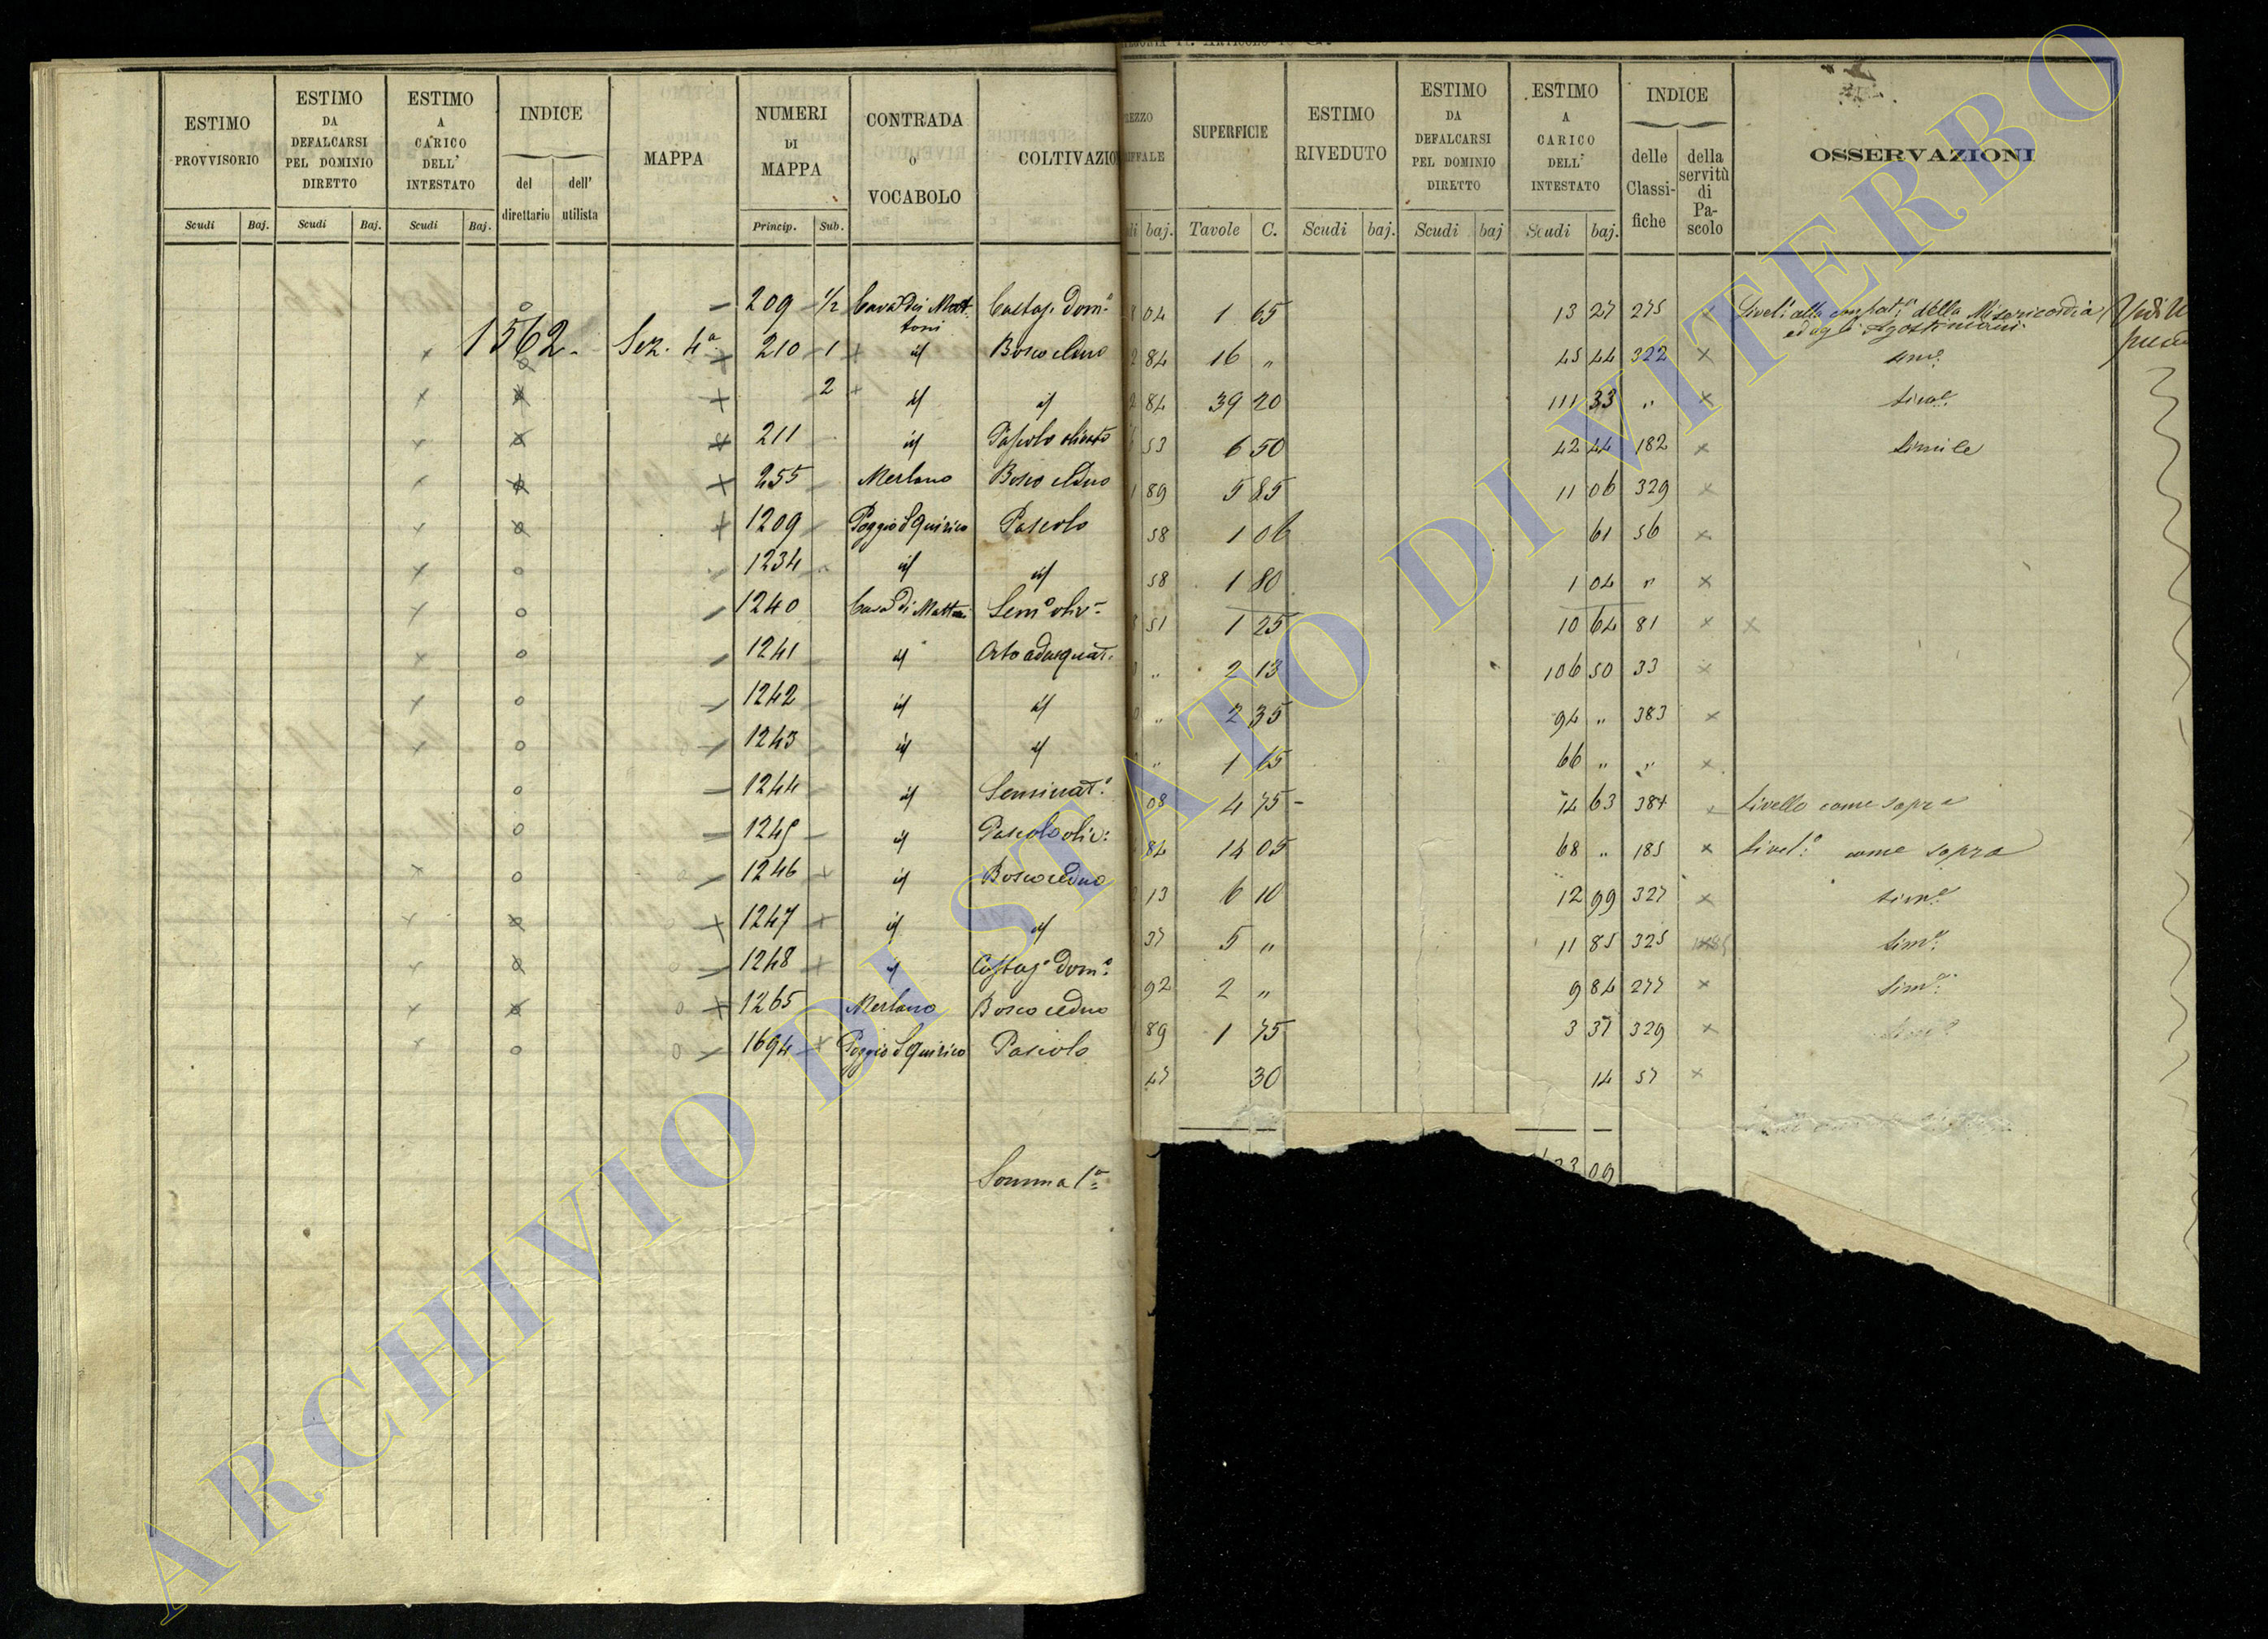 ESTIMO PROVVISORIO
Scudi Baj.
ESTIMO DA DEFALCARSI PEL DOMINIO DIRETTO
Scudi Baj.
ESTIMO A CARICO DELL' INTESTATO
Scudi Baj.
INDICE
del direttario
dell' utilista
MAPPA
NUMERI DI MAPPA
Princip. Sub.
CONTRADA O VOCABOLO
COLTIVAZIO
SUPERFICIE
baj. Tavole C.
ESTIMO RIVEDUTO
Scudi baj.
ESTIMO DA DEFALCARSI PEL DOMINIO DIRETTO
Scudi baj
ESTIMO A CARICO DELL' INTESTATO
Scudi baj.
INDICE
delle Classi-fiche
della servitù di Pa-scolo
OSSERVAZIONI
209 1/2 Cava dei Mattoni Castag. dom.o 04 1 65 13 27 275 Livel.i alla della Misericordia ed agli Agostiniani
1562 Sez. 4a 210 1 id Bosco ceduo 84 16 " 45 44 322 sime.
2 id id 84 39 20 111 33 " sime.
211 id Pascolo olivato 53 6 50 42 44 182 Simile
255 Merlano Bosco ceduo 89 5 85 11 06 329
1209 Poggio S Quirico Pascolo 58 1 06 61 56
1234 id id 58 1 80 1 04 "
1240 Cava di Mattoni Sem.o oliv. 51 1 25 10 64 81
1241 id Orto adacquat. " 2 13 106 50 33
1242 id id " 2 35 94 " 383
1243 id id " 1 15 66 " "
1244 id Seminat.o 08 4 75 14 63 384 Livello come sopra
1245 id Pascolo oliv: 84 14 05 68 " 185 Livel.o come sopra
1246 id Bosco ceduo 13 6 10 12 99 327 sime.
1247 id id 37 5 " 11 85 325 Sime.
1248 id Castag.o dom.o 92 2 " 9 84 277 Sime.
1265 Merlano Bosco ceduo 89 1 75 3 37 329
1694 Poggio S Quirico Pascolo 47 30 14 57
Somma 1a 09
ARCHIVIO DI STATO DI VITERBO